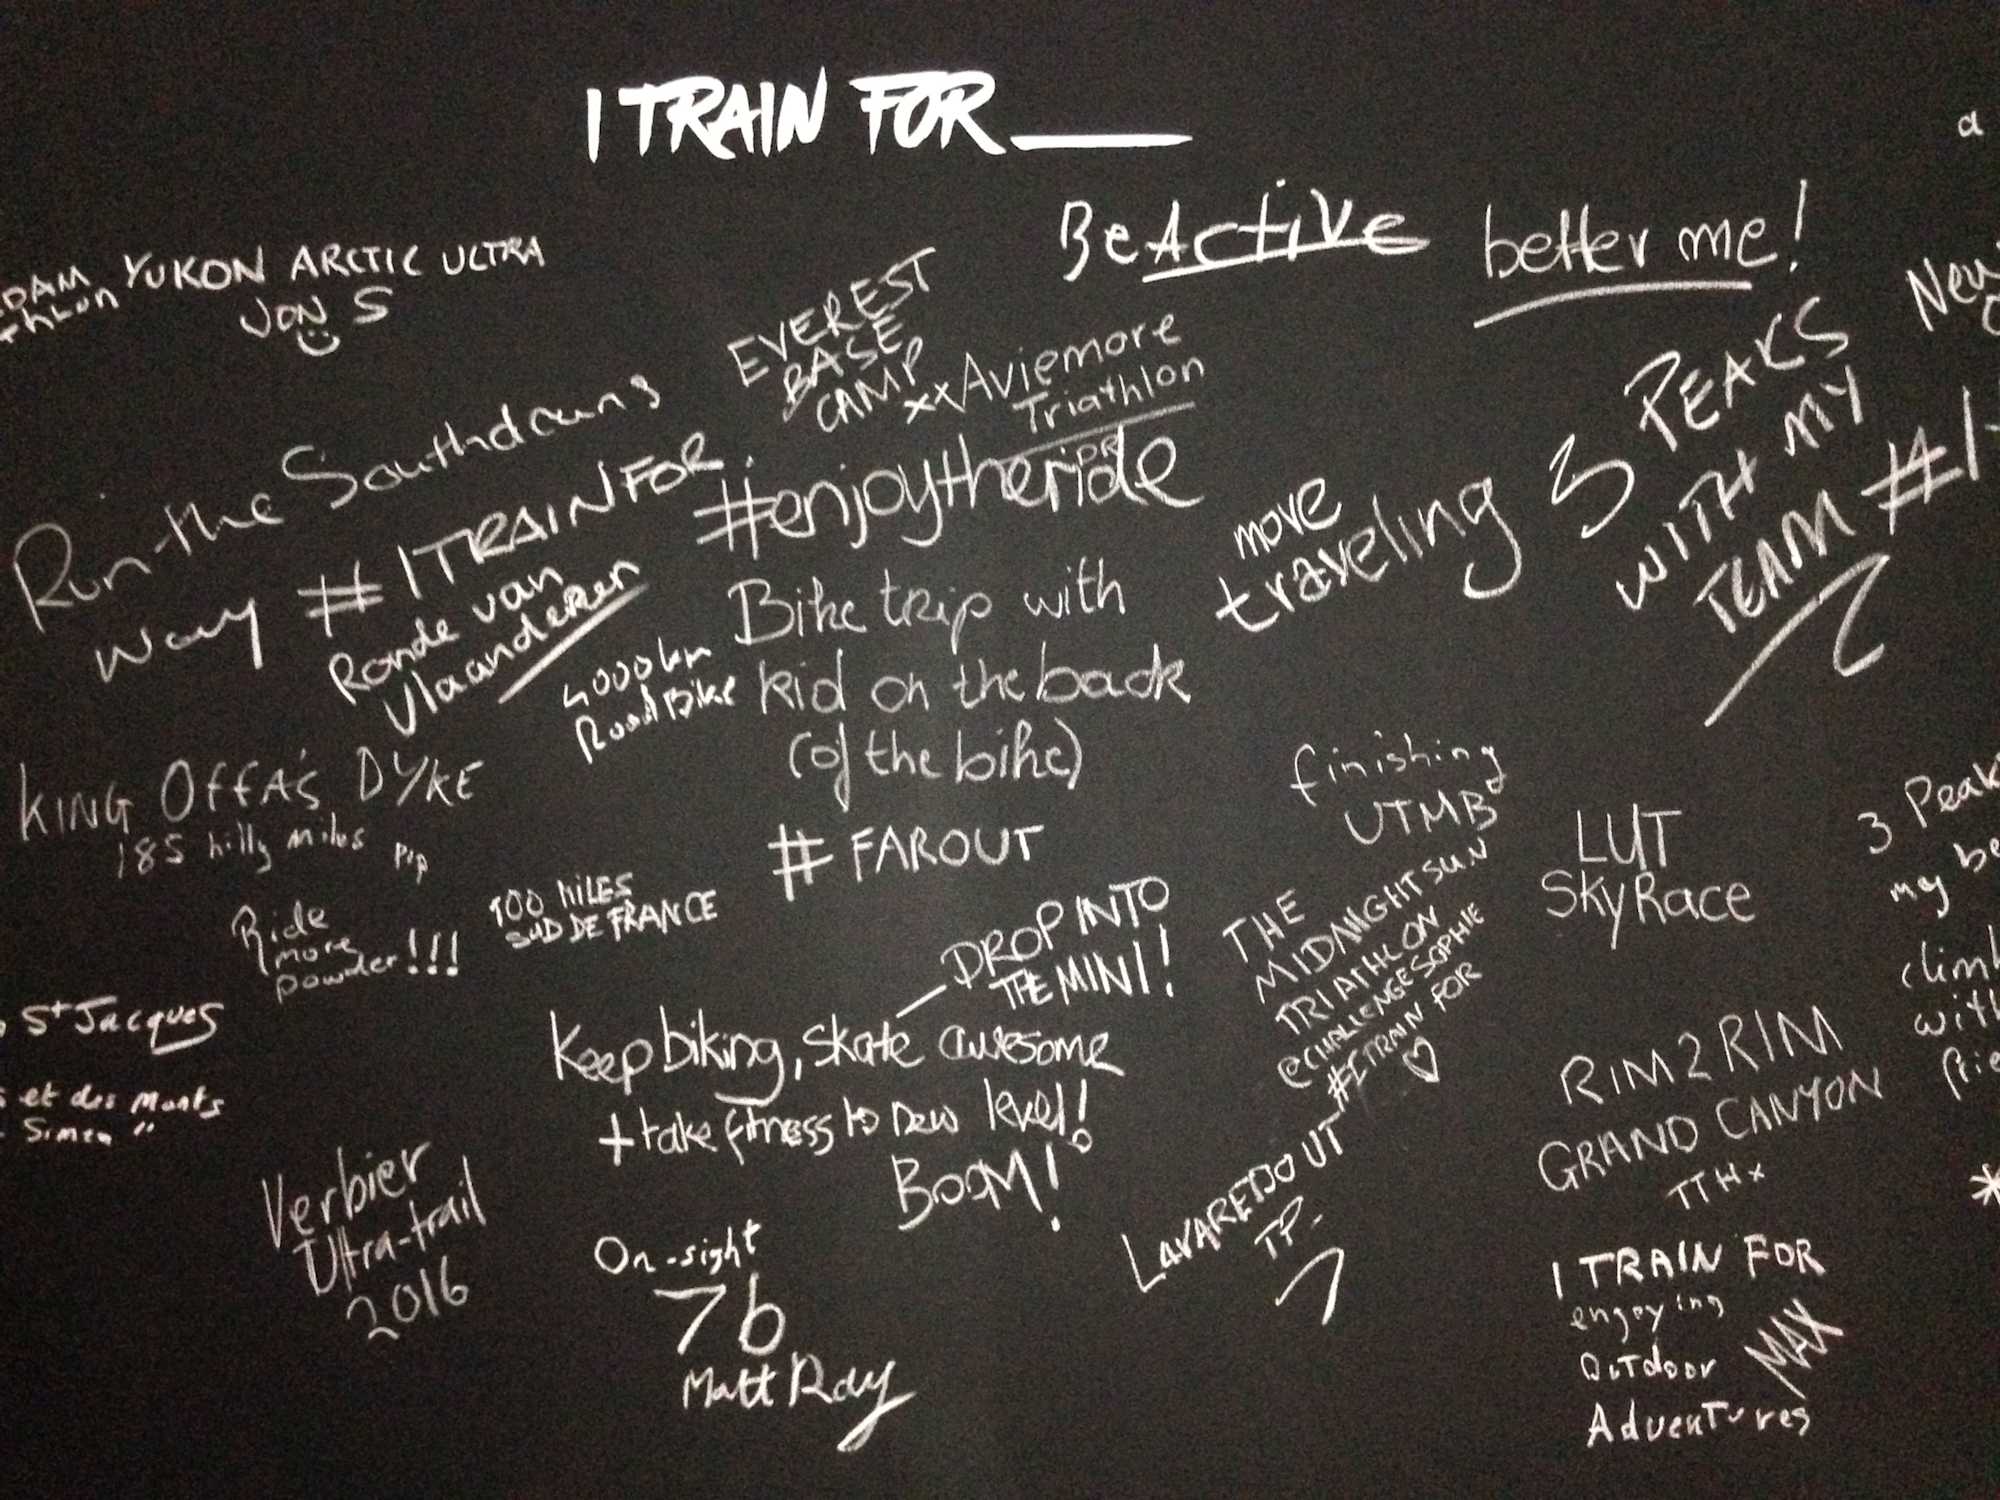 I TRAIN FOR
a
BeActive
better me!
YUKON ARCTIC ULTRA
JON S
EVEREST
BASE
CAMP
xx Aviemore
Triathlon
Run the Southdowns
way
#ITRAINFOR
Ronde van
Vlaanderen
#enjoytheride
move
traveling
3 PEAKS
WITH MY
TEAM #1
4000km
Road Bike
Bike trip with
kid on the back
(of the bike)
#FAROUT
KING OFFA'S DYKE
185 hilly miles
Pip
Ride
more
powder!!!
100 MILES
SUD DE FRANCE
finishing
UTMB
LUT
SkyRace
3 Peak
my be
climb
with
frie
THE
MIDNIGHT SUN
TRIATHLON
@CHALLENGESOPHIE
#ITRAIN FOR
DROP INTO
THE MINI!
Keep biking, skate awesome
+ take fitness to new level!
BOOM!
St Jacques
et des Monts
Simen"
RIM2RIM
GRAND CANYON
Verbier
Ultra-trail
2016
On-sight
7b
Matt Ray
LAVAREDO UT
TP.
I TRAIN FOR
enjoying
Outdoor
Adventures
MAX